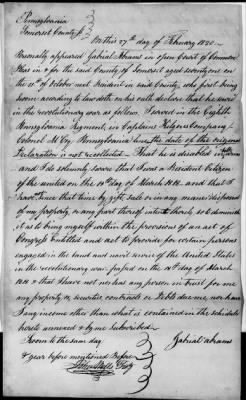 Pennsylvania
Somerset County ss
On this 27th day of February 1820
Personally appeared Gabriel Abrams in open Court of Common
Pleas in & for the said County of Somerset aged seventy one on
the of October next Resident in said County, who first being
sworn according to law doth on his oath declare that he served
in the revolutionary war as follows. I served in the Eighth
Pennsylvania Regiment, in Captain Company
Colonel Pennsylvania line, the date of the original
Declaration is not recollected. That he is disabled
and I do solemnly swear that I was a Resident Citizen
of the united on the 18th day of March 1818. and that I
have since that time by gift, sale or in any manner disposed
of my property, or any part thereof intent thereby so to diminish
it as to bring myself within the provisions of an act of
Congress Entitled and act to provide for certain persons
engaged in the land and naval service of the United States
in the revolutionary war. passed on the 18th day of March
1818 & that I have not nor has any person in trust for me
any property or securities contracts or Debts due me, nor have
I any income other than what is contained in the schedule
hereto annexed & by me subscribed
Sworn to the same day
& year before mentioned Before
Gabriel abrams